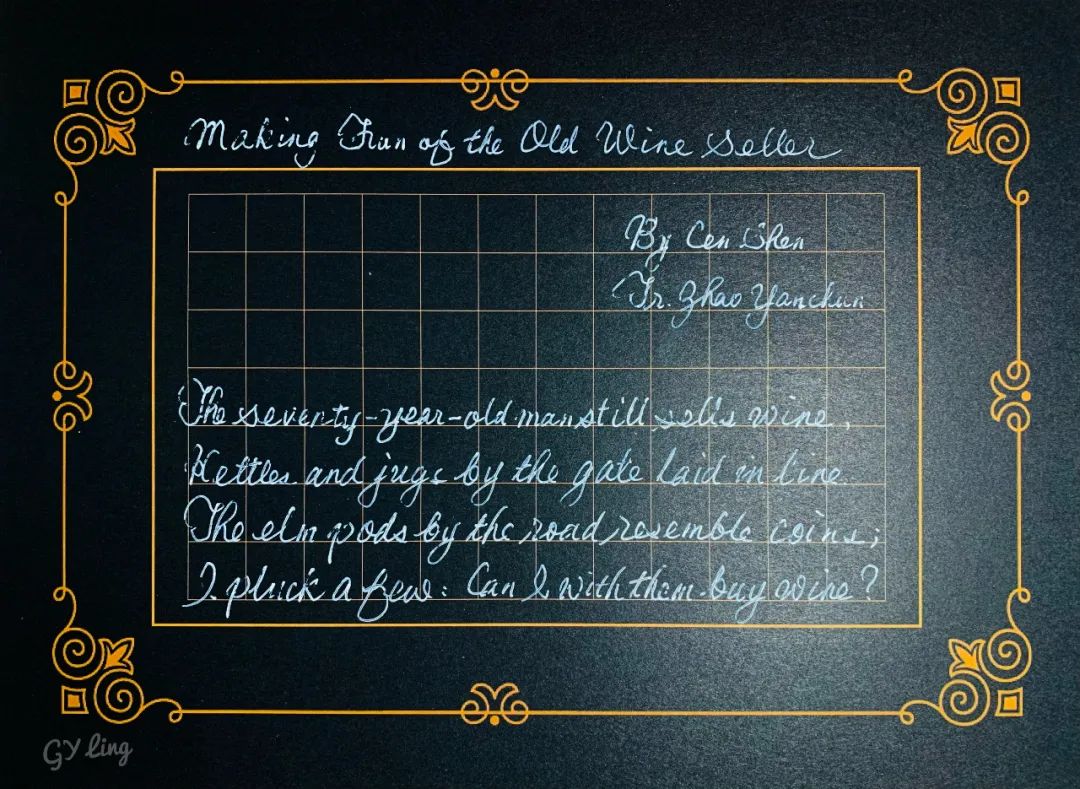 Making Fun of the Old Wine Seller
By Cen Shen
Tr. Zhao Yanchun
The seventy-year-old man still sells wine,
Kettles and jugs by the gate laid in line.
The elm pods by the road resemble coins;
I pluck a few: Can I with them buy wine?
GY ling